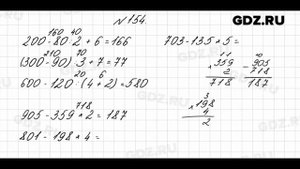 GDZ.RU
№ 154
160 40
200 - 80 · 2 + 6 = 166
210 70
(300 - 90) : 3 + 7 = 77
20 6
600 - 120 : (4 + 2) = 580
718
905 - 359 × 2 = 187
801 - 198 × 4 =
703 - 135 × 5 =
359
× 2
718
905
- 718
187
3
198
× 4
2